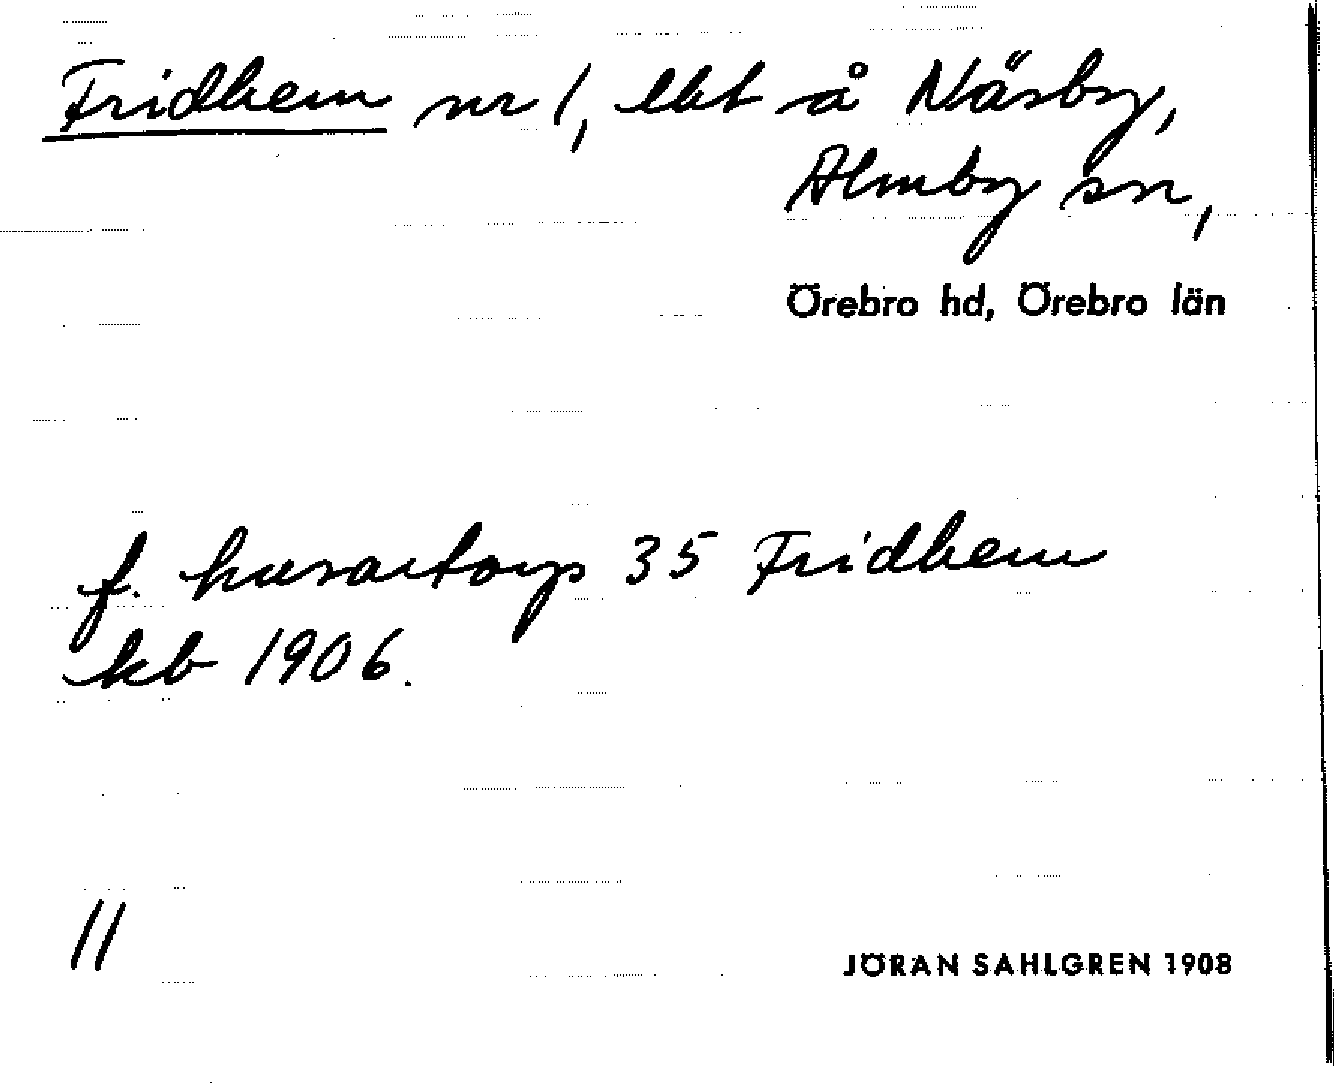 Fridhem nr 1, lht å Näsby,
Almby sn,
Örebro hd, Örebro län
f. husartorp 35 Fridhem
kb 1906.
11
JÖRAN SAHLGREN 1908